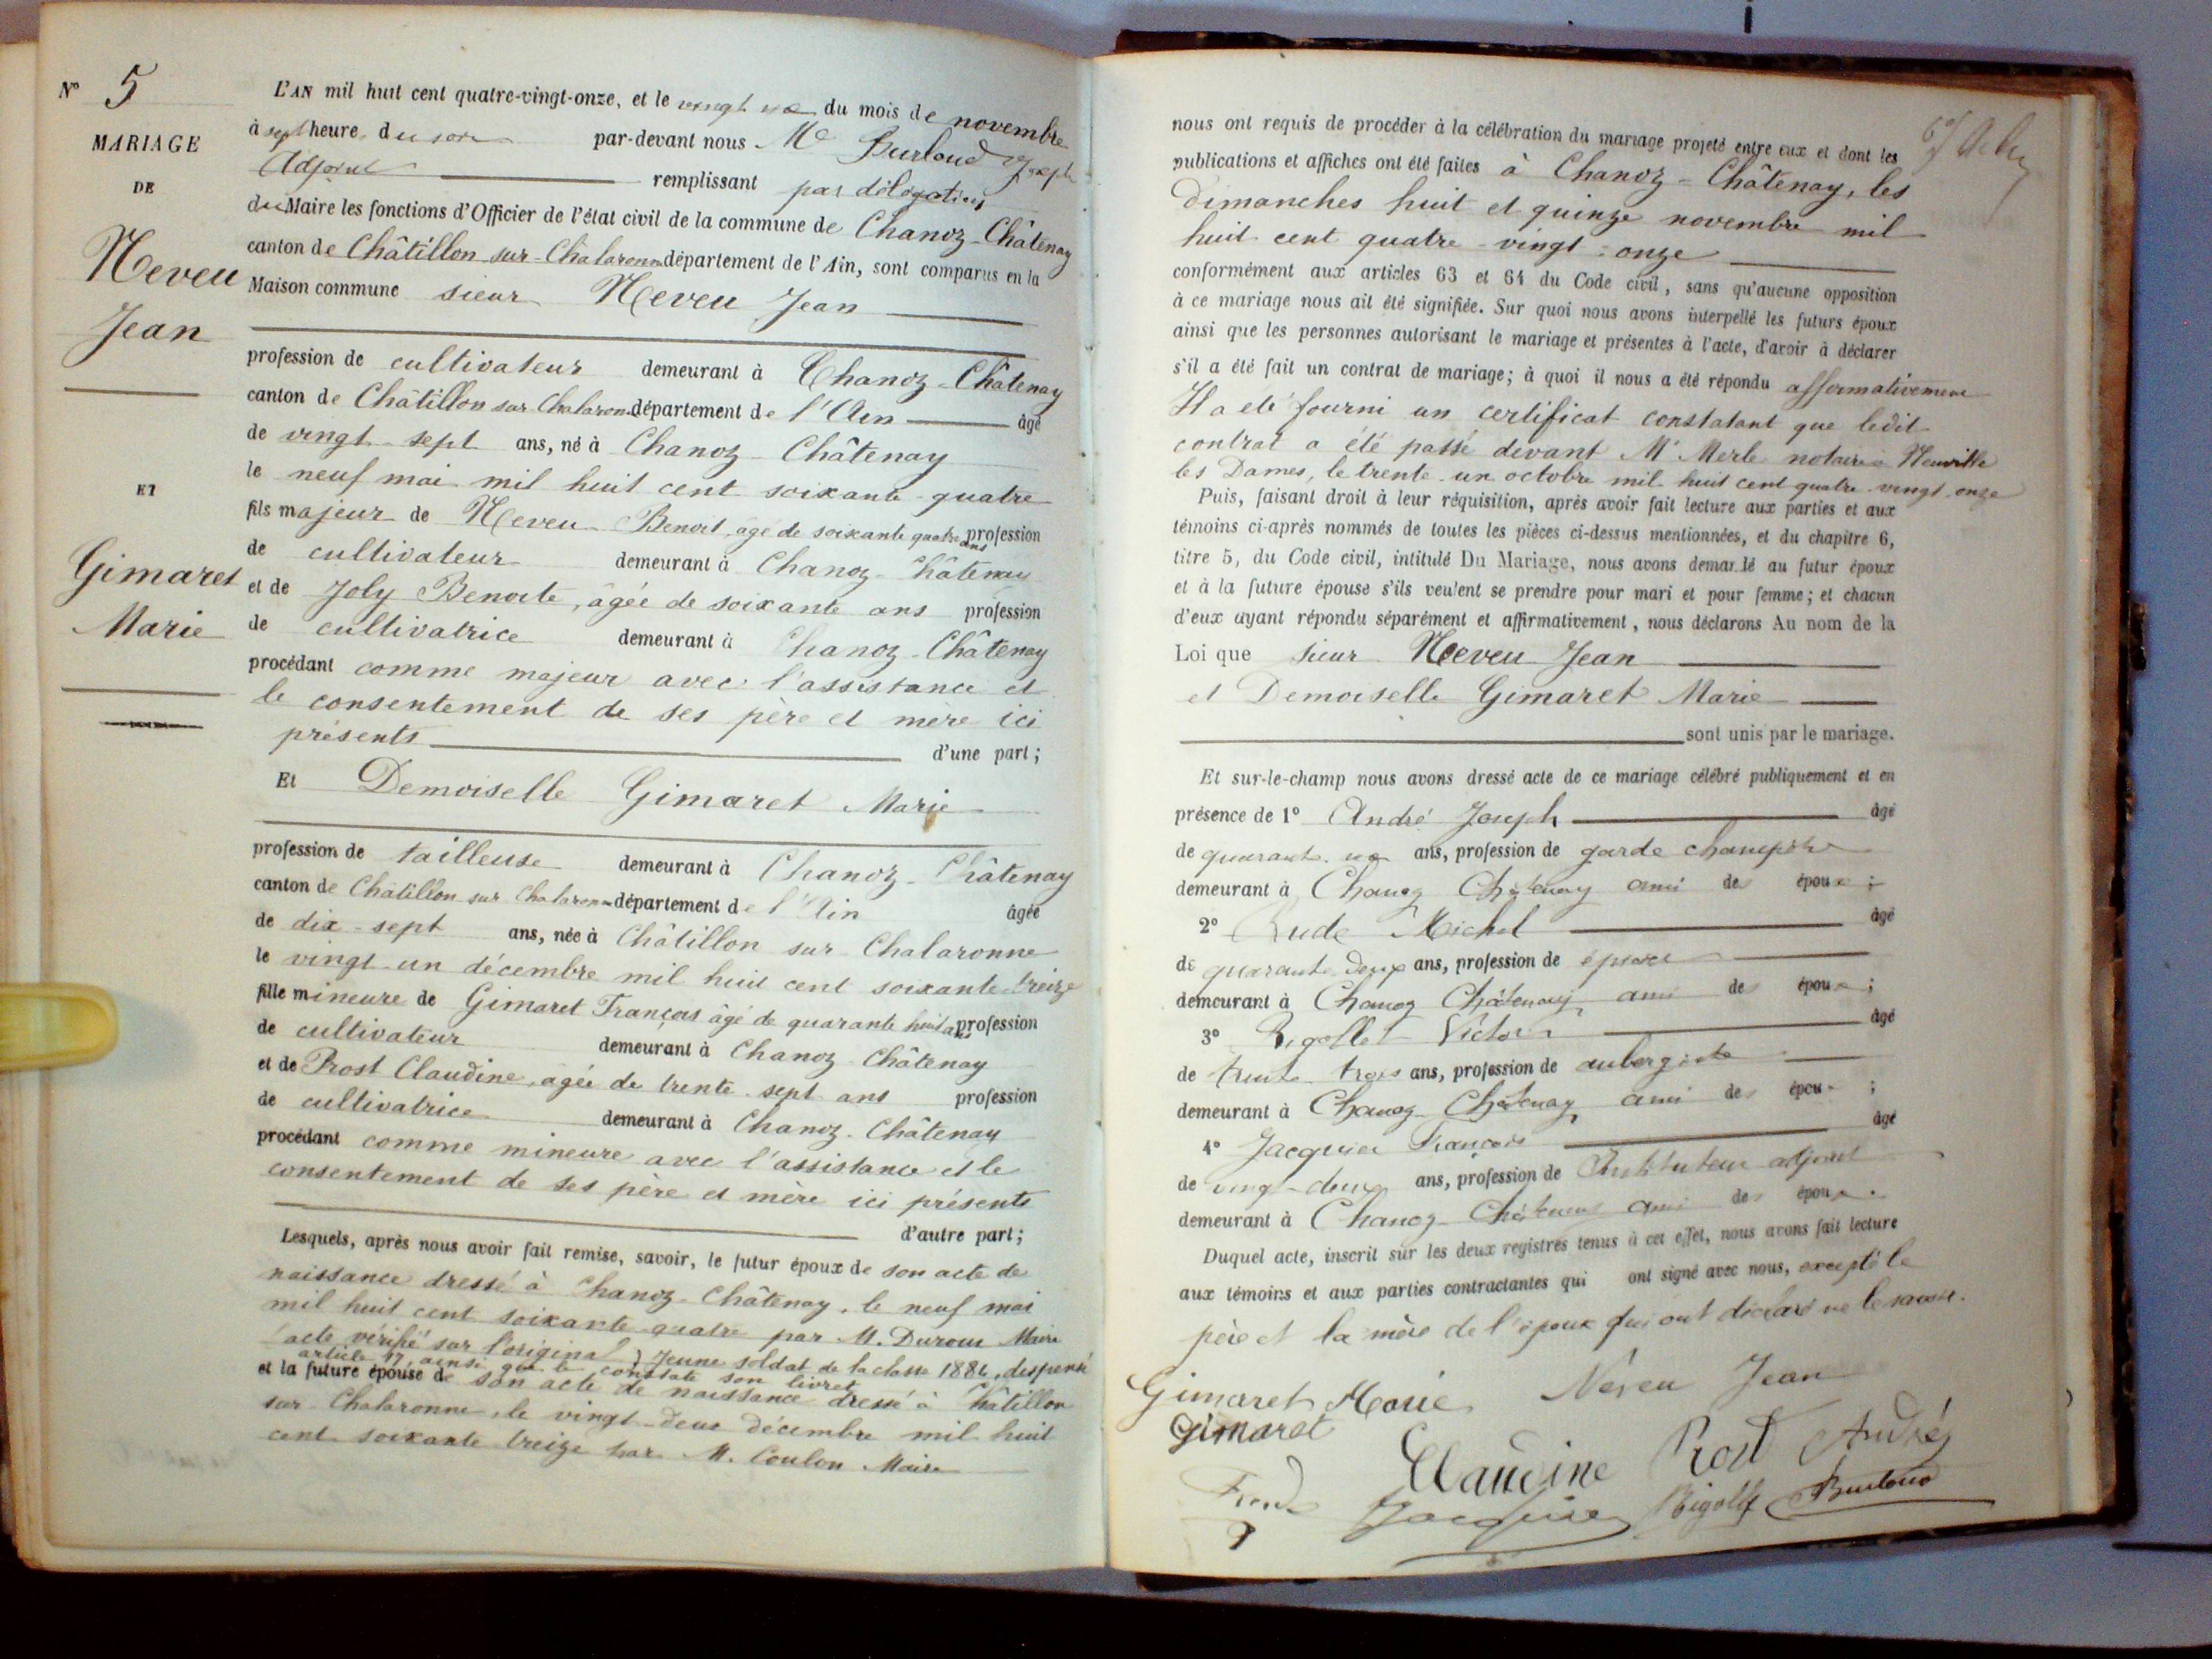 N° 5
MARIAGE
DE
Neveu
Jean
ET
Gimaret
Marie
L'AN mil huit cent quatre-vingt-onze, et le vingt un du mois de novembre
à sept heures du soir par-devant nous Me Burloud Joseph
Adjoint remplissant par délégation
du Maire les fonctions d'Officier de l'état civil de la commune de Chanoz-Châtenay
canton de Châtillon-sur-Chalaronne département de l'Ain, sont comparus en la
Maison commune sieur Neveu Jean
profession de cultivateur demeurant à Chanoz-Châtenay
canton de Châtillon sur Chalaronne département de l'Ain âgé
de vingt-sept ans, né à Chanoz-Châtenay
le neuf mai mil huit cent soixante-quatre
fils majeur de Neveu Benoit, âgé de soixante quatre ans profession
de cultivateur demeurant à Chanoz-Châtenay
et de Joly Benoite, âgée de soixante ans profession
de cultivatrice demeurant à Chanoz-Châtenay
procédant comme majeur avec l'assistance et
le consentement de ses père et mère ici
présents d'une part;
Et Demoiselle Gimaret Marie
profession de tailleuse demeurant à Chanoz-Châtenay
canton de Châtillon sur Chalaronne département de l'Ain âgée
de dix-sept ans, née à Châtillon sur Chalaronne
le vingt-un décembre mil huit cent soixante-treize
fille mineure de Gimaret François âgé de quarante huit ans profession
de cultivateur demeurant à Chanoz-Châtenay
et de Prost Claudine, âgée de trente-sept ans profession
de cultivatrice demeurant à Chanoz-Châtenay
procédant comme mineure avec l'assistance et le
consentement de ses père et mère ici présents
d'autre part;
Lesquels, après nous avoir fait remise, savoir, le futur époux de son acte de
naissance dressé à Chanoz-Châtenay, le neuf mai
mil huit cent soixante-quatre par M. Duroux Maire
(acte vérifié sur l'original) Jeune soldat de la classe 1884, dispensé
article 17, ainsi que le constate son livret
et la future épouse de son acte de naissance dressé à Châtillon
sur-Chalaronne, le vingt-deux décembre mil huit
cent soixante treize par M. Coulon Maire
nous ont requis de procéder à la célébration du mariage projeté entre eux et dont les
publications et affiches ont été faites à Chanoz-Châtenay, les
dimanches huit et quinze novembre mil
huit cent quatre-vingt-onze
conformément aux articles 63 et 64 du Code civil, sans qu'aucune opposition
à ce mariage nous ait été signifiée. Sur quoi nous avons interpellé les futurs époux
ainsi que les personnes autorisant le mariage et présentes à l'acte, d'avoir à déclarer
s'il a été fait un contrat de mariage; à quoi il nous a été répondu affirmativement
Il a été fourni un certificat constatant que ledit
contrat a été passé devant Me Merle notaire à Neuville
les Dames, le trente-un octobre mil huit cent quatre-vingt-onze
Puis, faisant droit à leur réquisition, après avoir fait lecture aux parties et aux
témoins ci-après nommés de toutes les pièces ci-dessus mentionnées, et du chapitre 6,
titre 5, du Code civil, intitulé Du Mariage, nous avons demandé au futur époux
et à la future épouse s'ils veulent se prendre pour mari et pour femme; et chacun
d'eux ayant répondu séparément et affirmativement, nous déclarons Au nom de la
Loi que sieur Neveu Jean
et Demoiselle Gimaret Marie
sont unis par le mariage.
Et sur-le-champ nous avons dressé acte de ce mariage célébré publiquement et en
présence de 1° André Joseph âgé
de quarante-un ans, profession de garde champêtre
demeurant à Chanoz Châtenay ami des époux;
2° Rude Michel âgé
de quarante-deux ans, profession de épicier
demeurant à Chanoz Châtenay ami des époux;
3° Rigollet Victor âgé
de trente-trois ans, profession de aubergiste
demeurant à Chanoz-Châtenay ami des époux;
4° Jacquier François âgé
de vingt-deux ans, profession de Instituteur adjoint
demeurant à Chanoz-Châtenay ami des époux.
Duquel acte, inscrit sur les deux registres tenus à cet effet, nous avons fait lecture
aux témoins et aux parties contractantes qui ont signé avec nous, excepté le
père et la mère de l'époux qui ont déclaré ne le savoir.
Gimaret Marie Neveu Jean
Gimaret
Claudine Prost André
Jacquier Rigollet Burloud